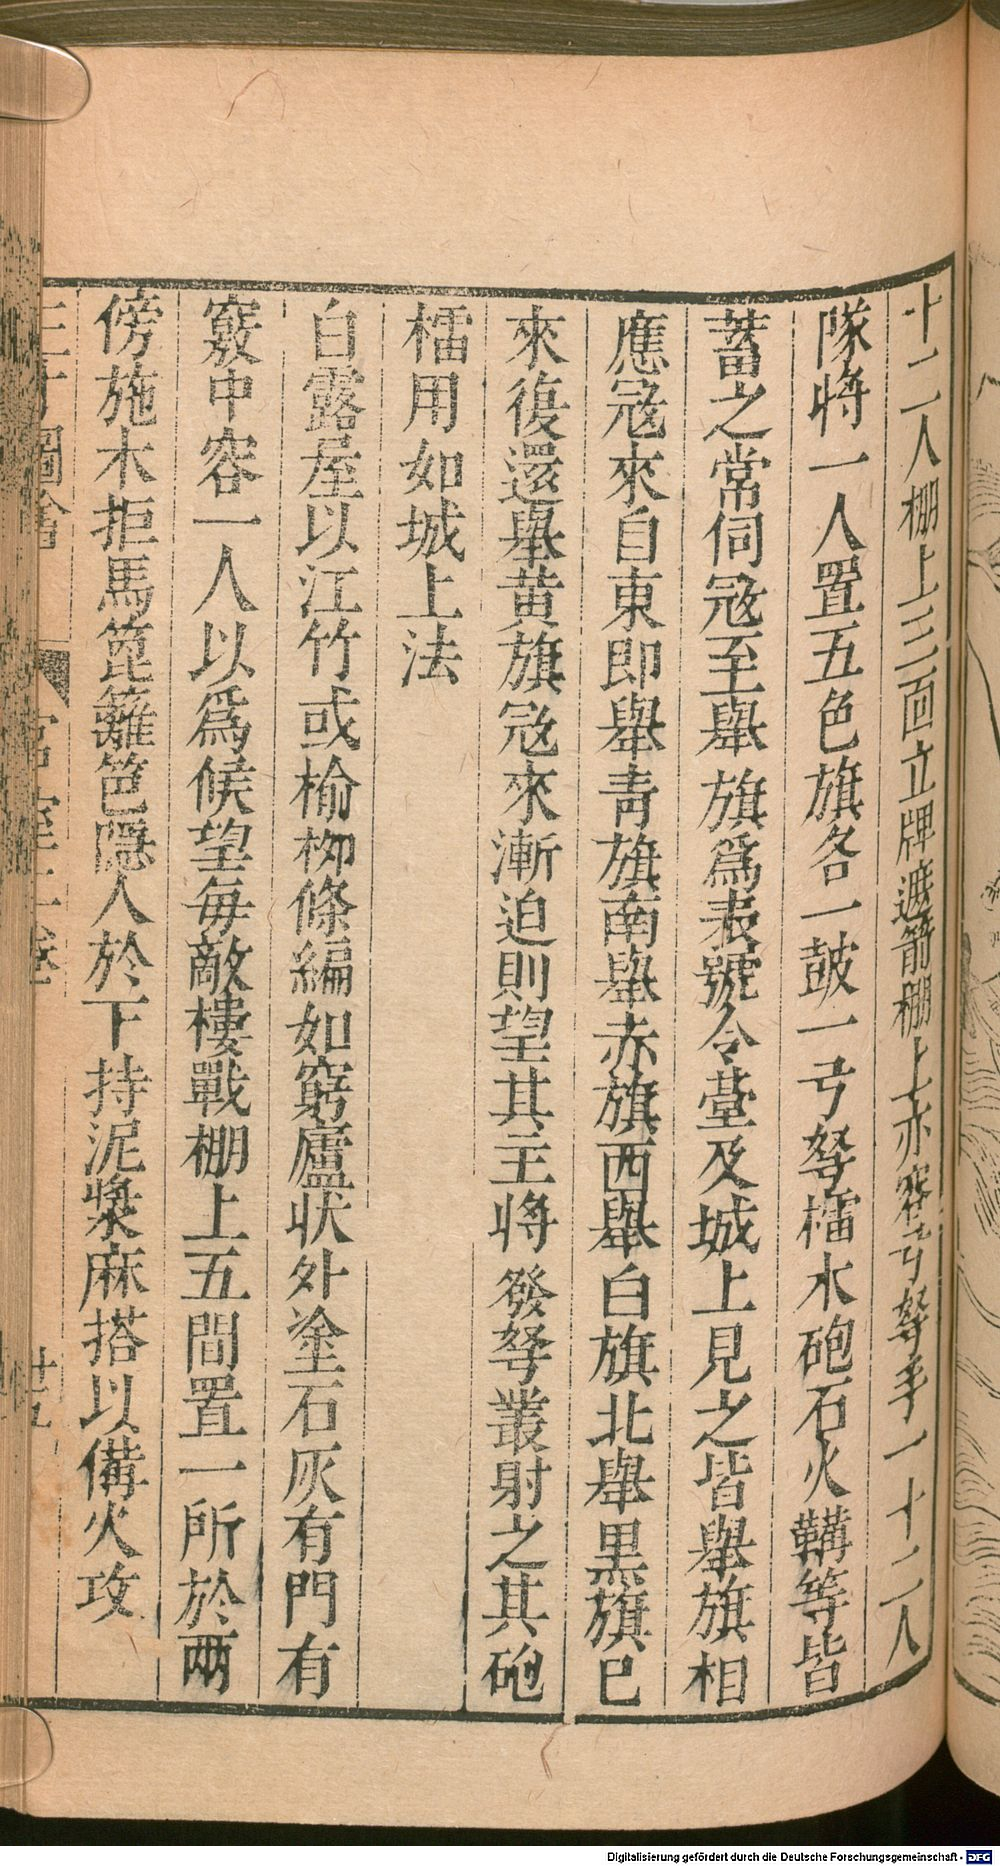 十二人棚上三面立牌遮箭棚上亦容弓弩手一十二人
隊將一人置五色旗各一鼓一弓弩檑木砲石火鞲等皆
蓄之常伺冦至舉旗爲表號令臺及城上見之皆舉旗相
應冦來自東即舉靑旗南舉赤旗西舉白旗北舉黑旗已
來復還舉黄旗冦來漸迫則望其主將發弩叢射之其砲
檑用如城上法
白露屋以江竹或榆柳條編如窮廬状外塗石灰有門有
竅中容一人以爲候望每敵樓戰棚上五間置一所於兩
傍施木拒馬篦籬笆隱人於下持泥漿麻搭以備火攻
三才圖會
宮室二卷
廿五
Digitalisierung gefördert durch die Deutsche Forschungsgemeinschaft - DFG